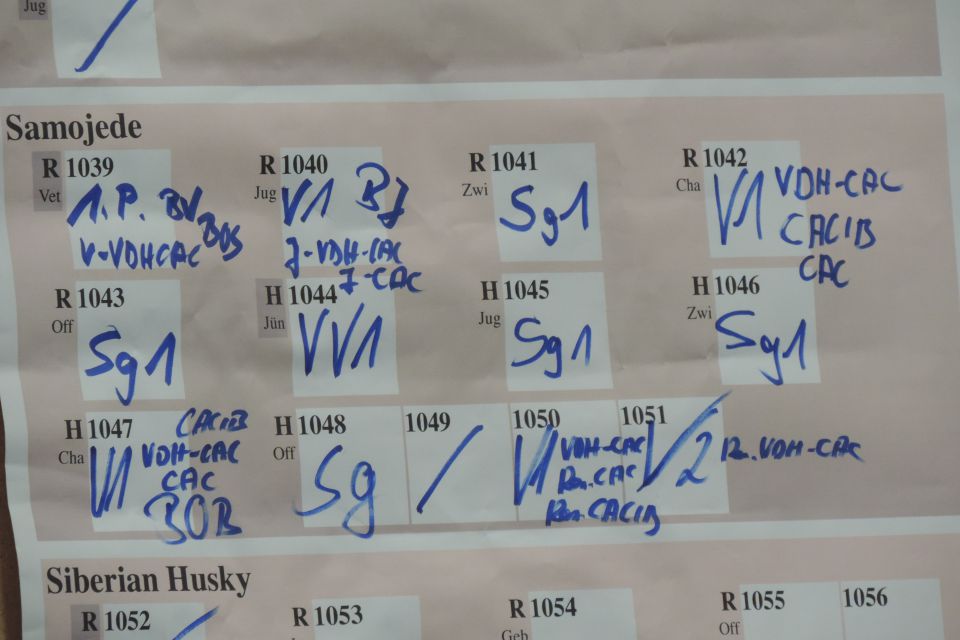 Jug
Samojede
R 1039
Vet
1. P. BV
BOS
V-VDHCAC
R 1040
Jug
V1 BJ
J-VDH-CAC
J-CAC
R 1041
Zwi
Sg1
R 1042
Cha
V1 VDH-CAC
CACIB
CAC
R 1043
Off
Sg1
H 1044
Jün
VV1
H 1045
Jug
Sg1
H 1046
Zwi
Sg1
H 1047
Cha
CACIB
V1 VDH-CAC
CAC
BOB
H 1048
Off
Sg
1049
/
1050
V1 VDH-CAC
Res.CAC
Res.CACIB
1051
V2 Res.VDH-CAC
Siberian Husky
R 1052
R 1053
R 1054
Geb
R 1055
Off
1056